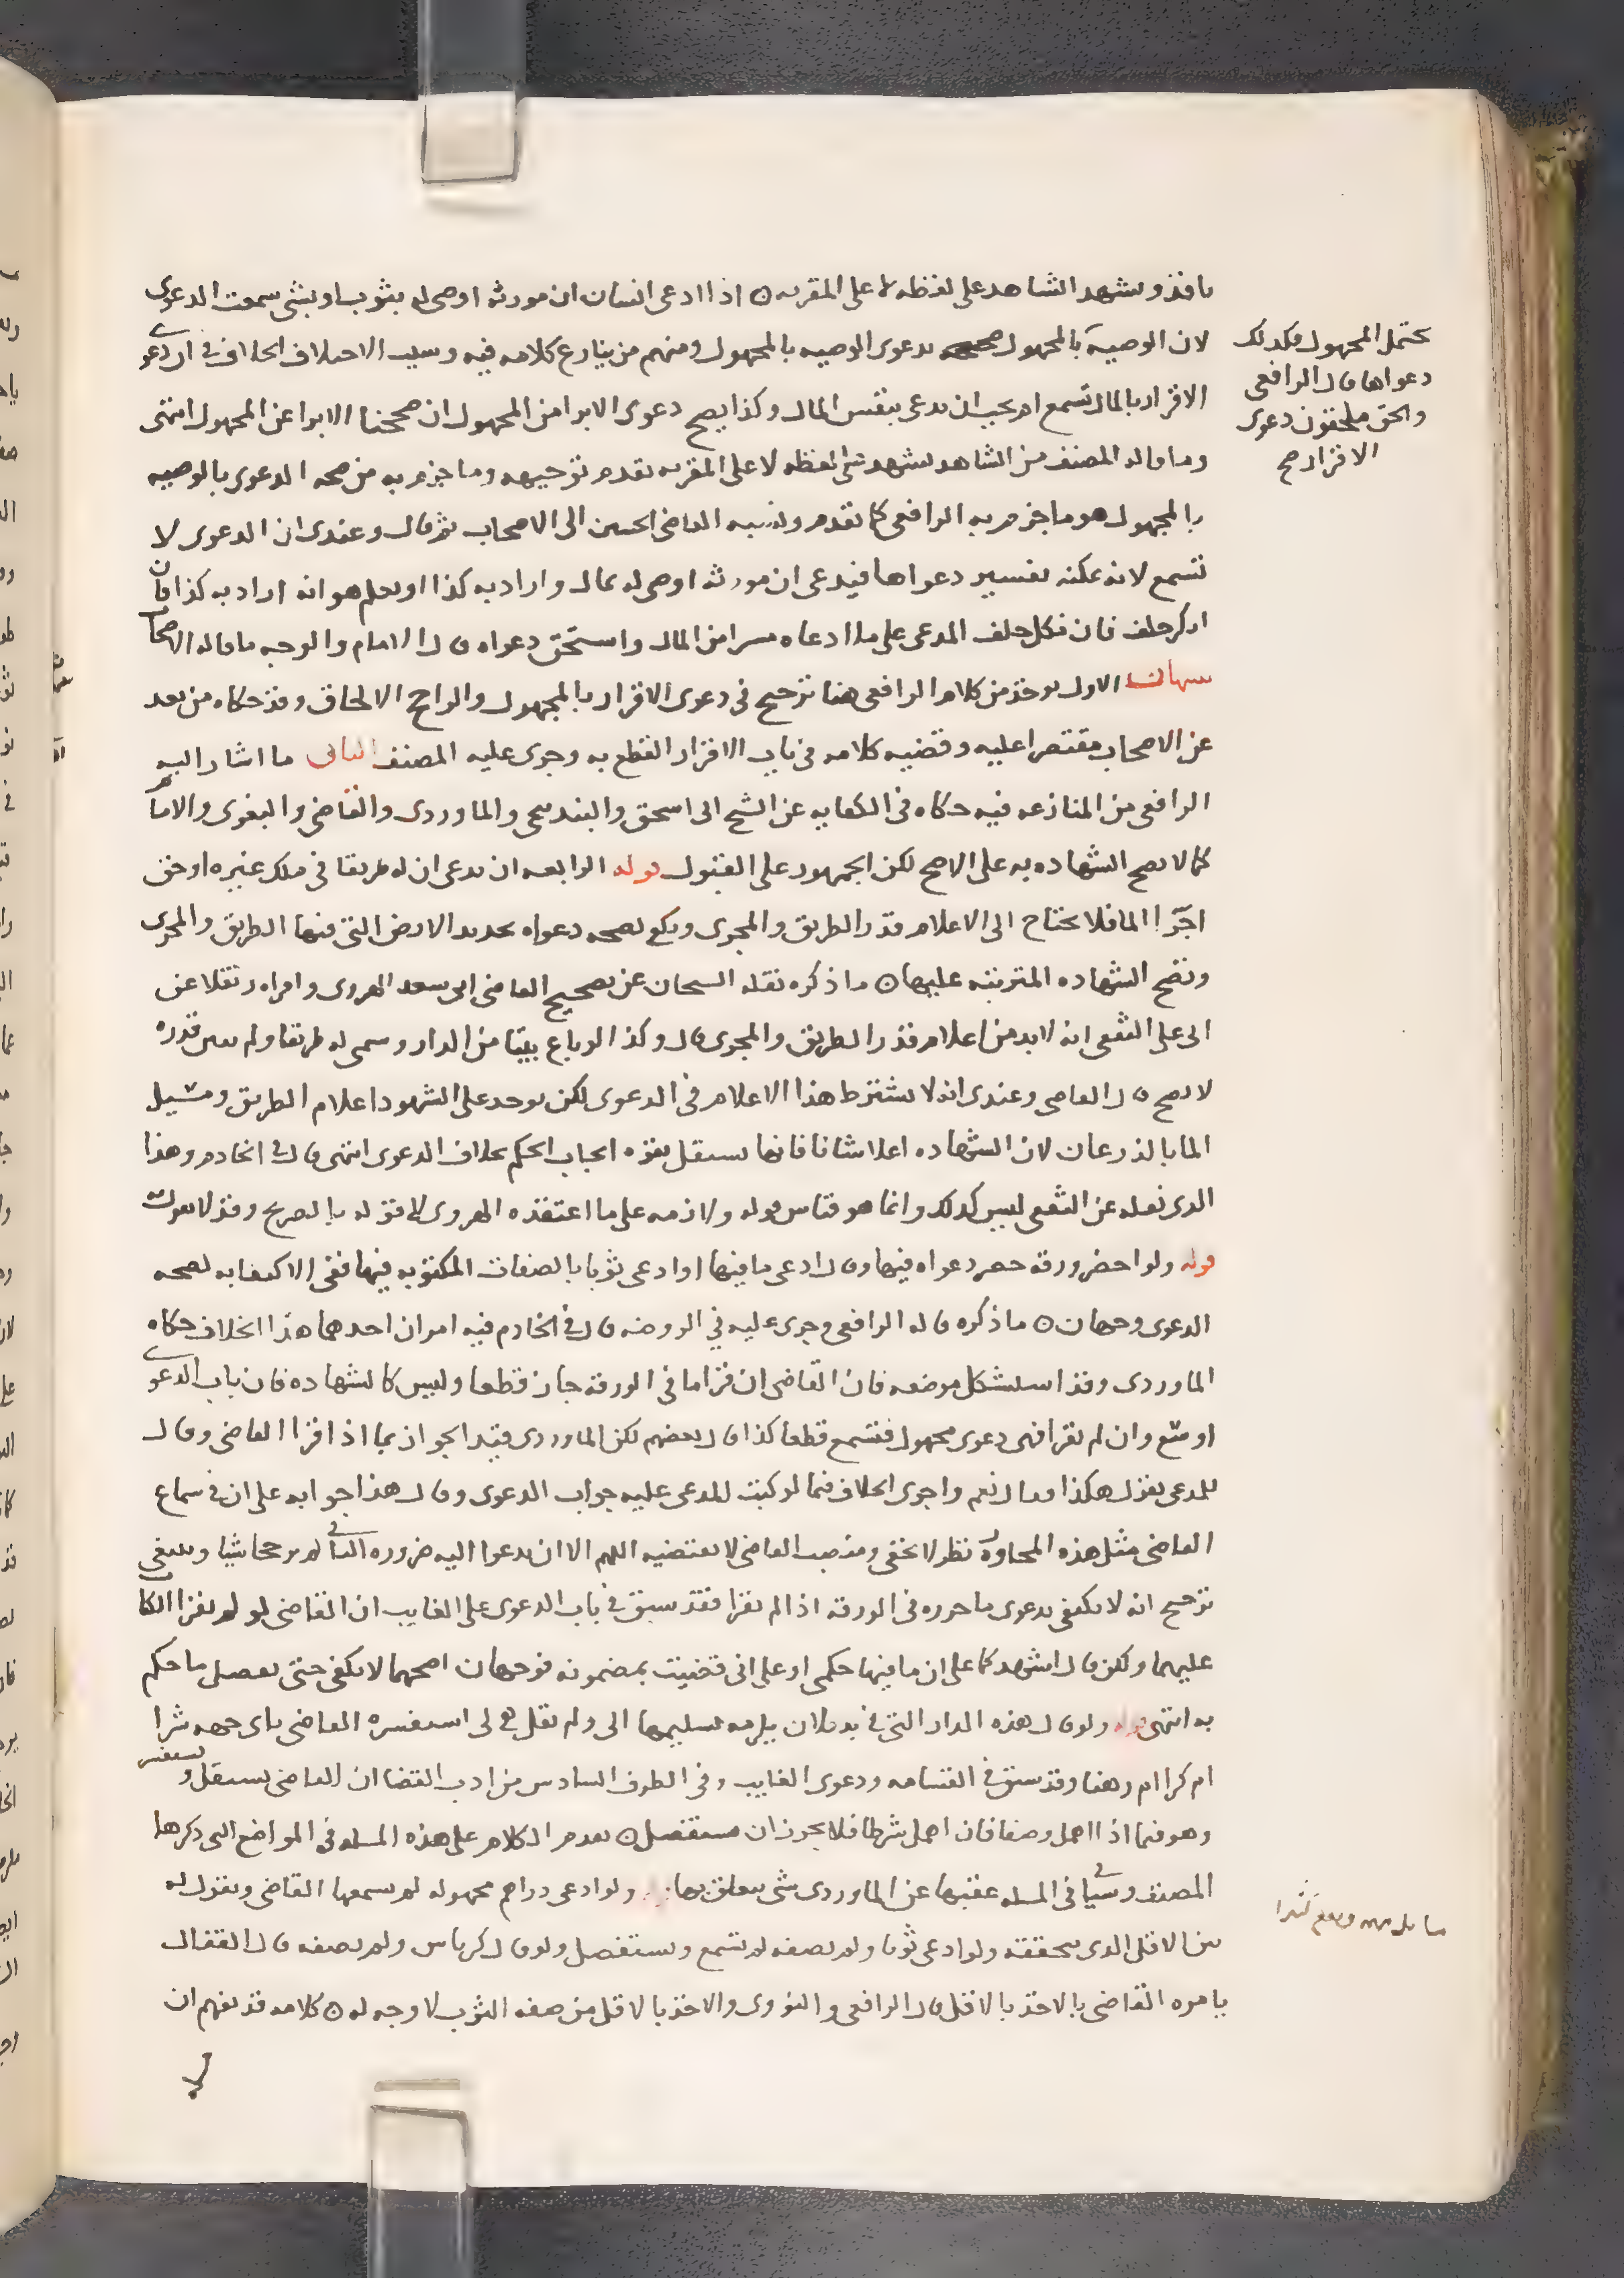 نافذ ويشهد الشاهد على لفظه لا على المقر به ه اذا ادعى انسان ان مورثه اوصى له بثوب او بشى سمعت الدعوى
لان الوصية بالمجهول صحيحه بدعوى الوصيه بالمجهول ومنهم من ينازع كلامه فيه وسبب الاختلاف الخلاف في ان دعوى
الاقرار بالمال تسمع ام يجب ان يدعى بنفس المال وكذا يصح دعوى الابرا من المجهول ان صححنا الابرا عن المجهول انتهى
وما قاله المصنف من الشاهد يشهد على لفظه لا على المقر به تقدم توجيهه وما جزم به من صحه الدعوى بالوصيه
بالمجهول هو ما جزم به الرافعى كما تقدم ونسبه القاضى الحسين الى الاصحاب ثم قال وعندى ان الدعوى لا
تسمع لانه يمكنه تفسير دعواها فيدعى ان مورثه اوصى له بمال واراد به كذا او يعلم هو انه اراد به كذا فان
انكر حلف فان نكل حلف المدعى على ما ادعاه مفسرا من المال واستحق دعواه قال الامام والوجه ما قاله الاصحاب
تنبيهات الاول يوخذ من كلام الرافعى هنا ترجيح في دعوى الاقرار بالمجهول والراجح الالحاق وقد حكاه من بعد
عن الاصحاب مقتصرا عليه وقضيه كلامه في باب الاقرار القطع به وجرى عليه المصنف الثانى ما اشار اليه
الرافعى من المنازعه فيه حكاه في الكفايه عن الشيخ ابى اسحق والبندنيجى والماوردى والقاضى والبغوى والامام
كما لا يصح الشهاده به على الاصح لكن الجمهور على القبول قوله الرابعه ان يدعى ان له طريقا في ملك غيره او حق
اجرا الما فلا يحتاج الى الاعلام قدر الطريق والمجرى ويكفى لصحه دعواه تحديد الارض التى فيها الطريق والمجرى
وتصح الشهاده المترتبه عليها ه ما ذكره نقله الشيخان عن تصحيح القاضى ابى سعد الهروى وامراه نقلا عن
ابى على الثقفى انه لا بد من اعلام قدر الطريق والمجرى قال وكذا لو باع بيتا من الدار وسمى له طريقا ولم يبين قدره
لا يصح قال القاضى وعندى انه لا يشترط هذا الاعلام في الدعوى لكن يوخذ على الشهود اعلام الطريق ومسيل
الما بالذرعان لان الشهاده اعلا شانا فانها تستقل بقوه ايجاب الحكم بخلاف الدعوى انتهى قال في الخادم وهذا
الذى نقله عن الثقفى ليس كذلك وانما هو قياس قوله ولازمه على ما اعتقده الهروى لا قوله بالصريح وقد لا يقول به
قوله ولو احضر ورقه حرر دعواه فيها وقال ادعى ما فيها او ادعى ثوبا بالصفات المكتوبه فيها ففى الاكتفا به لصحه
الدعوى وجهان ه ما ذكره قاله الرافعى وجرى عليه في الروضه قال في الخادم فيه امران احدهما هذا الخلاف حكاه
الماوردى وقد استشكل موضعه فان القاضى ان قرا ما في الورقه جاز قطعا وليس كالشهاده فان باب الدعوى
اوسع وان لم يقرا فهى دعوى مجهول فتسمع قطعا كذا قال بعضهم لكن الماوردى قيد الجواز بما اذا قرا القاضى وقال
للمدعى يقول هكذا وقال نعم واجرى الخلاف فيما لو كتب للمدعى عليه جواب الدعوى وقال هذا جوابه على ان في سماع
القاضى مثل هذه المحاوره نظر لا يخفى ومنصب القاضى لا يقتضيه اللهم الا ان يدعوا اليه ضروره الثانى لم يرجحا شيا وينبغى
ترجيح انه لا يكتفى بدعوى ما حرره في الورقه اذا لم يقرا فقد سبق في باب الدعوى على الغايب ان القاضى لو لم يقرا الكتاب
عليهما ولكن قال اشهدكما على ان ما فيها حكمى او على انى قضيت بمضمونه فوجهان اصحهما لا يكفى حتى يفصل ما حكم
به انتهى قوله ولو قال هذه الدار التى في يد فلان يلزمه تسليمها الى ولم يقل هى لى استفسره القاضى باى جهه شرا
ام كرا ام رهنا وقد سبق في القسامه ودعوى الغايب وفى الطرف السادس من ادب القضا ان القاضى يستقل ويستفسر
وهو فيما اذا اهمل وصفا فان اهمل شرطا فلا يجوز ان يستفصل ه تقدم الكلام على هذه المسله في المواضع التى ذكرها
المصنف وسياتى في المسله عقبها عن الماوردى شى يتعلق بها ولو ادعى دراهم مجهوله لم يسمعها القاضى ويقول له
بين الاقل الذى تحققته ولو ادعى ثوبا ولم يصفه لم تسمع ويستفصل ولو قال كرباس ولم يصفه قال القفال
يامره القاضى بالاخذ بالاقل قال الرافعى والنووى والاخذ بالاقل من صفه الثوب لا وجه له ه كلامه قد يفهم ان
لا
يحتمل المجهول فكذلك
دعواها قال الرافعى
والحق ملحقون دعوى
الاقرار صح